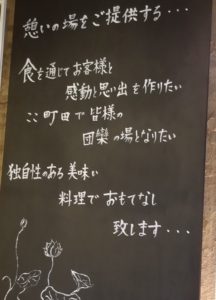 憩いの場をご提供する・・・
食を通じてお客様と
感動と思い出を作りたい
ここ町田で皆様の
団欒の場となりたい
独自性のある美味い
料理でおもてなし
致します・・・